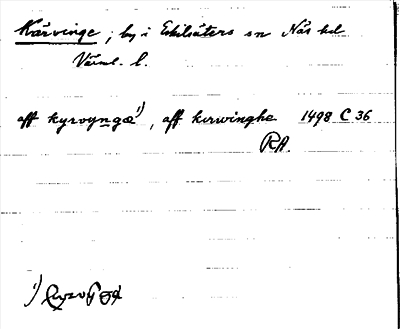 Kärvinge, by i Eskilsäters sn Näs hd
Värml. l.
aff kyrvyngæ¹), aff kirwinghe 1498 C 36
RA.
1)